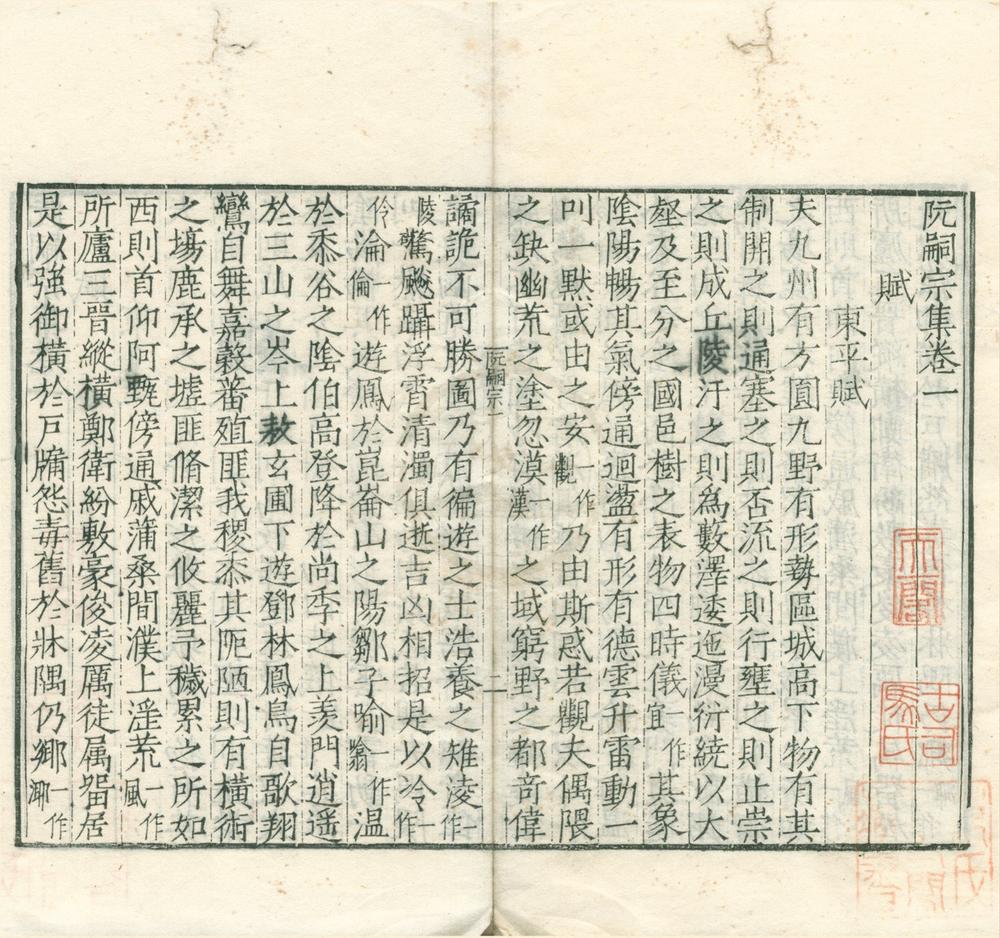 阮嗣宗集卷一
賦
東平賦
夫九州有方圓九野有形勢區城高下物有其
制開之則通塞之則否流之則行壅之則止崇
之則成丘陵汙之則為藪澤逶迤漫衍繞以大
壑及至分之國邑樹之表物四時儀一作宜其象
陰陽暢其氣傍通迴盪有形有德雲升雷動一
叫一默或由之安一作觀乃由斯惑若觀夫偶隈
之缺幽荒之塗忽漠一作漢之域窮野之都竒偉
譎詭不可勝圖乃有徧遊之士浩養之雉凌一作
陵驚飈躡浮霄清濁俱逝吉凶相招是以泠一作
伶淪一作倫遊鳳於崑崙山之陽鄒子喻一作噏溫
於黍谷之陰伯高登降於尚季之上羨門逍遥
於三山之岑上敖玄圃下遊鄧林鳳鳥自歌翔
鸞自舞嘉穀蕃殖匪我稷黍其阨陋則有橫術
之場鹿承之墟匪脩潔之攸麗予穢累之所如
西則首仰阿甄傍通戚蒲桑間濮上滛荒一作風
所廬三晉縱橫鄭衛紛敷豪俊凌厲徒属畱居
是以強御橫於戸牖怨毒舊於牀隅仍鄉一作
阮嗣宗一
二
古司馬氏